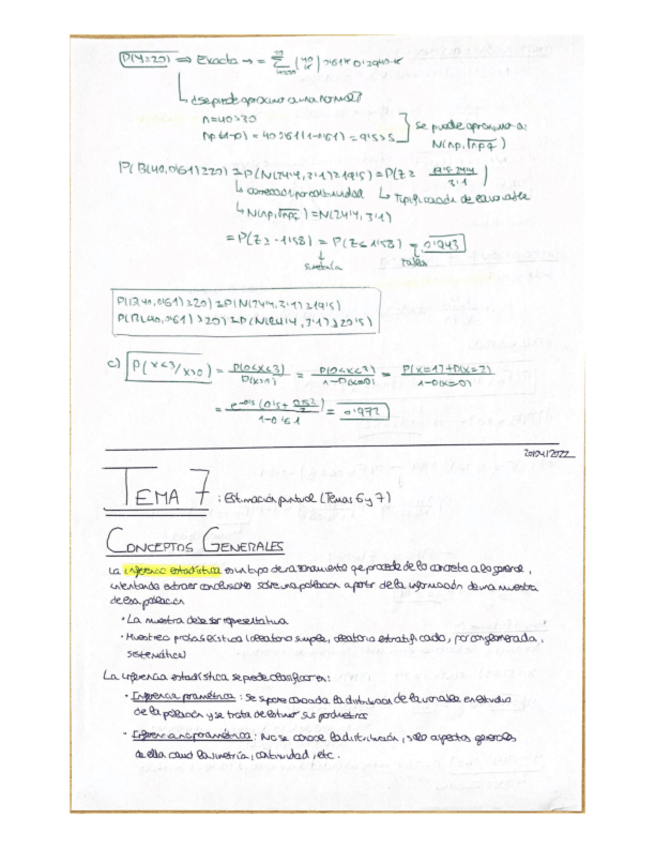 P(Y≥20) ⇒ Exacta → = Σ (40 k) 0'61^k 0'39^40-k
↳ ¿se puede aproximar a una normal?
n=40>30
np(1-p) = 40·0'61(1-0'61) = 9'5>5 } se puede aproximar a:
N(np,√npq)
P(B(40,0'61)≥20) ≃ P(N(24'4,3'1)≥19'5) = P(Z ≥ (19'5-24'4)/3'1)
↳ corrección por continuidad ↳ Tipificación de la variable
↳ N(np,√npq) = N(24'4, 3'1)
= P(Z ≥ -1'58) = P(Z ≤ 1'58) = 0'943
simetría tablas
P(B(40,0'61)≥20) ≃ P(N(24'4,3'1)≥19'5)
P(B(40,0'61)>20) ≃ P(N(24'4,3'1)≥20'5)
c) P(x<3/x>0) = P(0<x<3)/P(x>0) = P(0<x<3)/1-P(x=0) = P(x=1)+P(x=2)/1-P(x=0)
= e^-0'5 (0'5 + 0'5²/2)/1-0'61 = 0'972
20/04/2022
TEMA 7 : Estimación puntual (Temas 6 y 7)
CONCEPTOS GENERALES
La inferencia estadística es un tipo de razonamiento que procede de lo concreto a lo general,
intentando extraer conclusiones sobre una población a partir de la información de una muestra
de esa población
• La muestra debe ser representativa
• Muestreo probabilístico (aleatorio simple, aleatorio estratificado, por conglomerados,
sistemático)
La inferencia estadística se puede clasificar en:
• Inferencia paramétrica: Se supone conocida la distribución de la variable en estudio
de la población y se trata de estimar sus parámetros
• Inferencia no paramétrica: No se conoce la distribución, solo aspectos generales
de ella como la simetría, continuidad, etc.